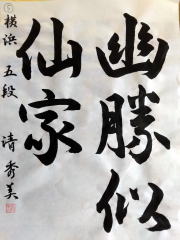 幽勝似
仙家
⑤ 横浜 五段 清秀美